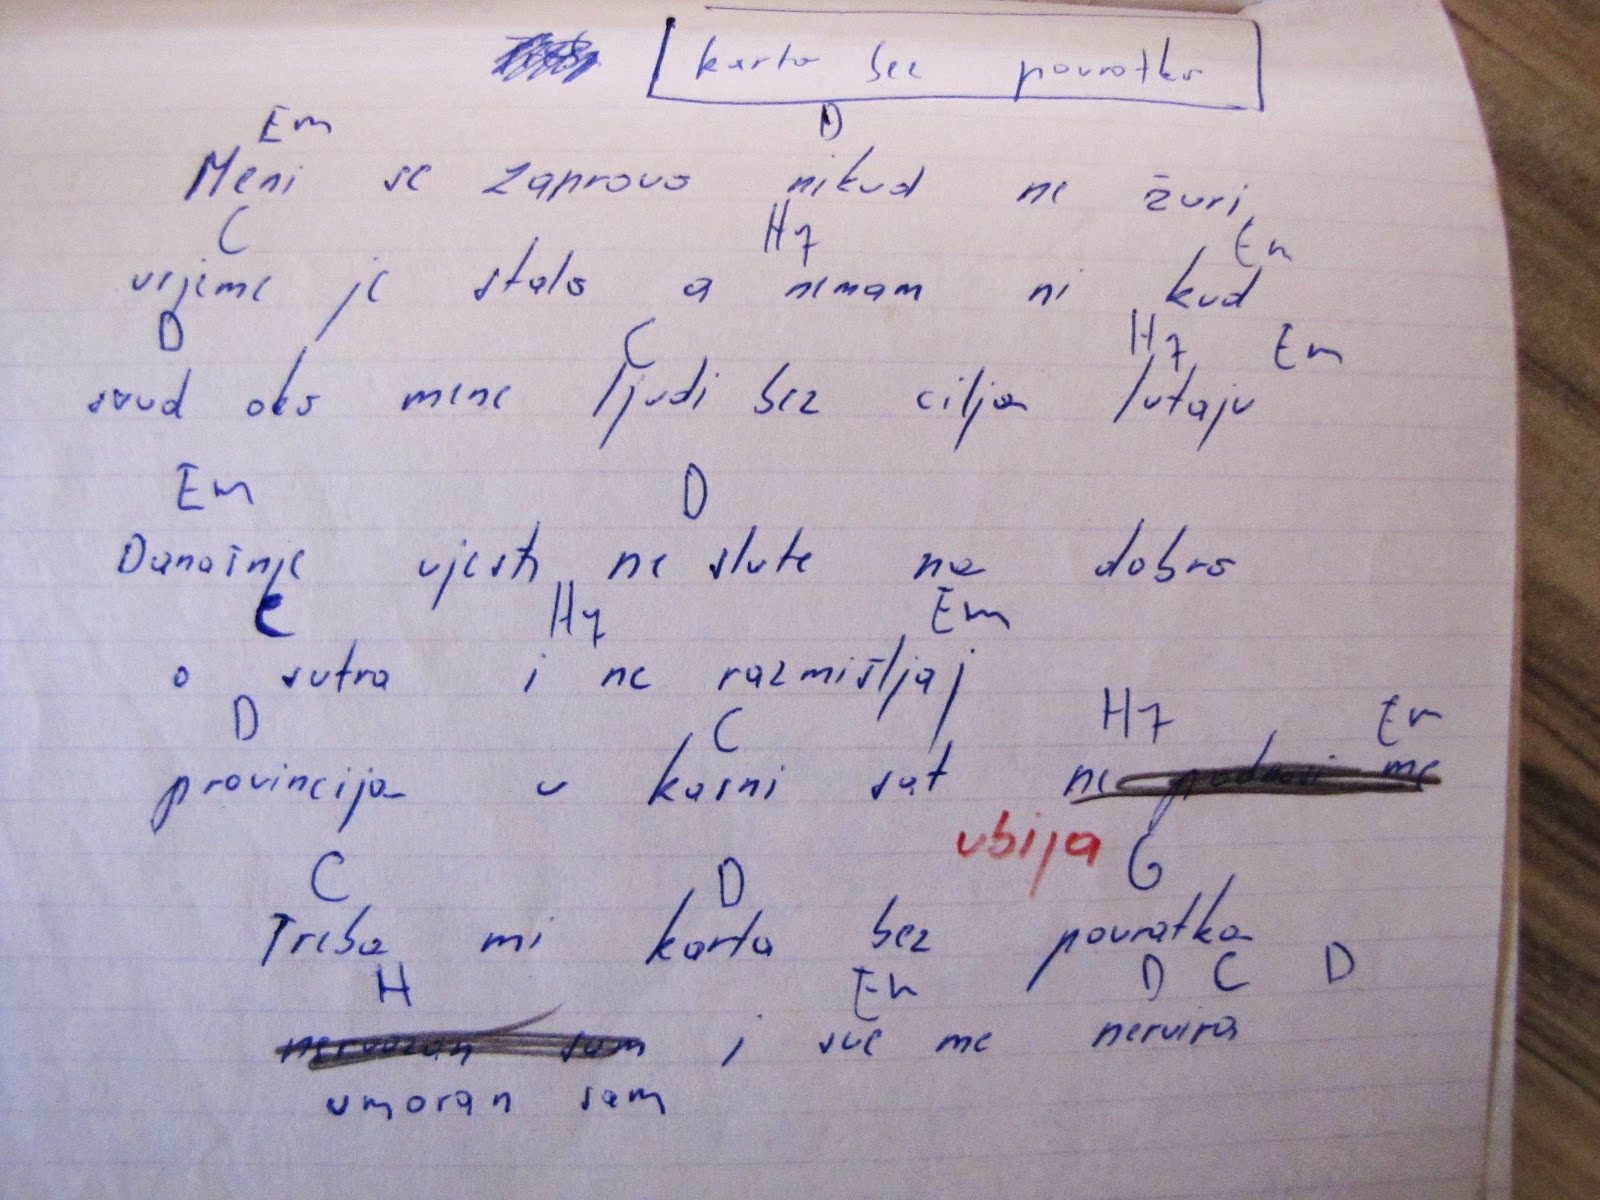 karta bez povratka
Em D
Meni se zapravo nikud ne žuri
C H7 Em
vrjeme je stalo a nemam ni kud
D C H7 Em
svud oko mene ljudi bez cilja lutaju
Em D
Današnje vjesti ne slute na dobro
C H7 Em
o sutra i ne razmišljaj
D C H7 Em
provincija u kasni sat ne podnosi me
ubija
C D G
Treba mi karta bez povratka
H Em D C D
nervozan sam i sve me nervira
umoran sam